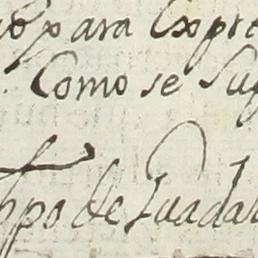 para Expre
. Como se Sup
hpo de Guadal